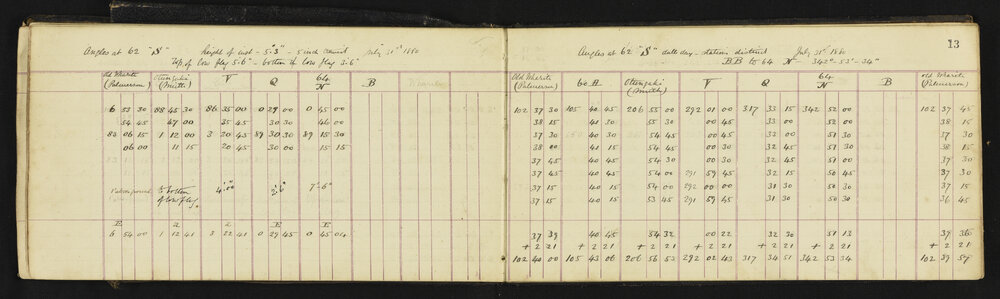 13
Angles at 62 "S" height of inst - 5'3" - 5 inch July 31st 1880
Top of low flag 5.6" - bottom of low flag 3.6"
Old Wharite (Palmerson) Otungaki (Smith) V Q 64 N B
6 53 30 88 45 30 86 35 00 0 29 00 0 45 00
54 45 47 00 35 45 30 30 46 00
83 06 15 1 12 00 3 20 45 89 30 30 89 15 30
06 00 11 15 20 45 30 00 15 15
to bottom of low flag. 4'.00" 2'.6" 7'-6"
E E E
6 54 00 1 12 41 3 22 41 0 29 45 0 45 04
Angles at 62 "S" dull day - stations distinct July 31st 1880
BB to 64 N - 342° - 53' - 34"
Old Wharite (Palmerson) 60 A Otungaki (Smith) V Q 64 N B Old Wharite (Palmerson)
102 37 30 105 40 45 206 55 00 292 01 00 317 33 15 342 52 00 102 37 45
38 15 41 30 55 30 00 45 33 00 52 00 38 15
37 30 40 30 54 45 00 30 33 00 51 30 37 30
38 00 41 15 54 45 00 30 32 45 51 30 38 15
37 45 40 45 54 30 00 30 32 45 51 00 37 30
37 45 40 45 54 00 291 59 45 32 15 50 45 37 30
37 15 40 15 54 00 292 00 00 31 30 50 30 37 15
37 15 40 15 53 45 291 59 45 31 30 50 30 36 45
37 39 40 45 54 32 00 22 32 30 51 13 37 36
+ 2 21 + 2 21 + 2 21 + 2 21 + 2 21 + 2 21 + 2 21
102 40 00 105 43 06 206 56 53 292 02 43 317 34 51 342 53 34 102 39 57